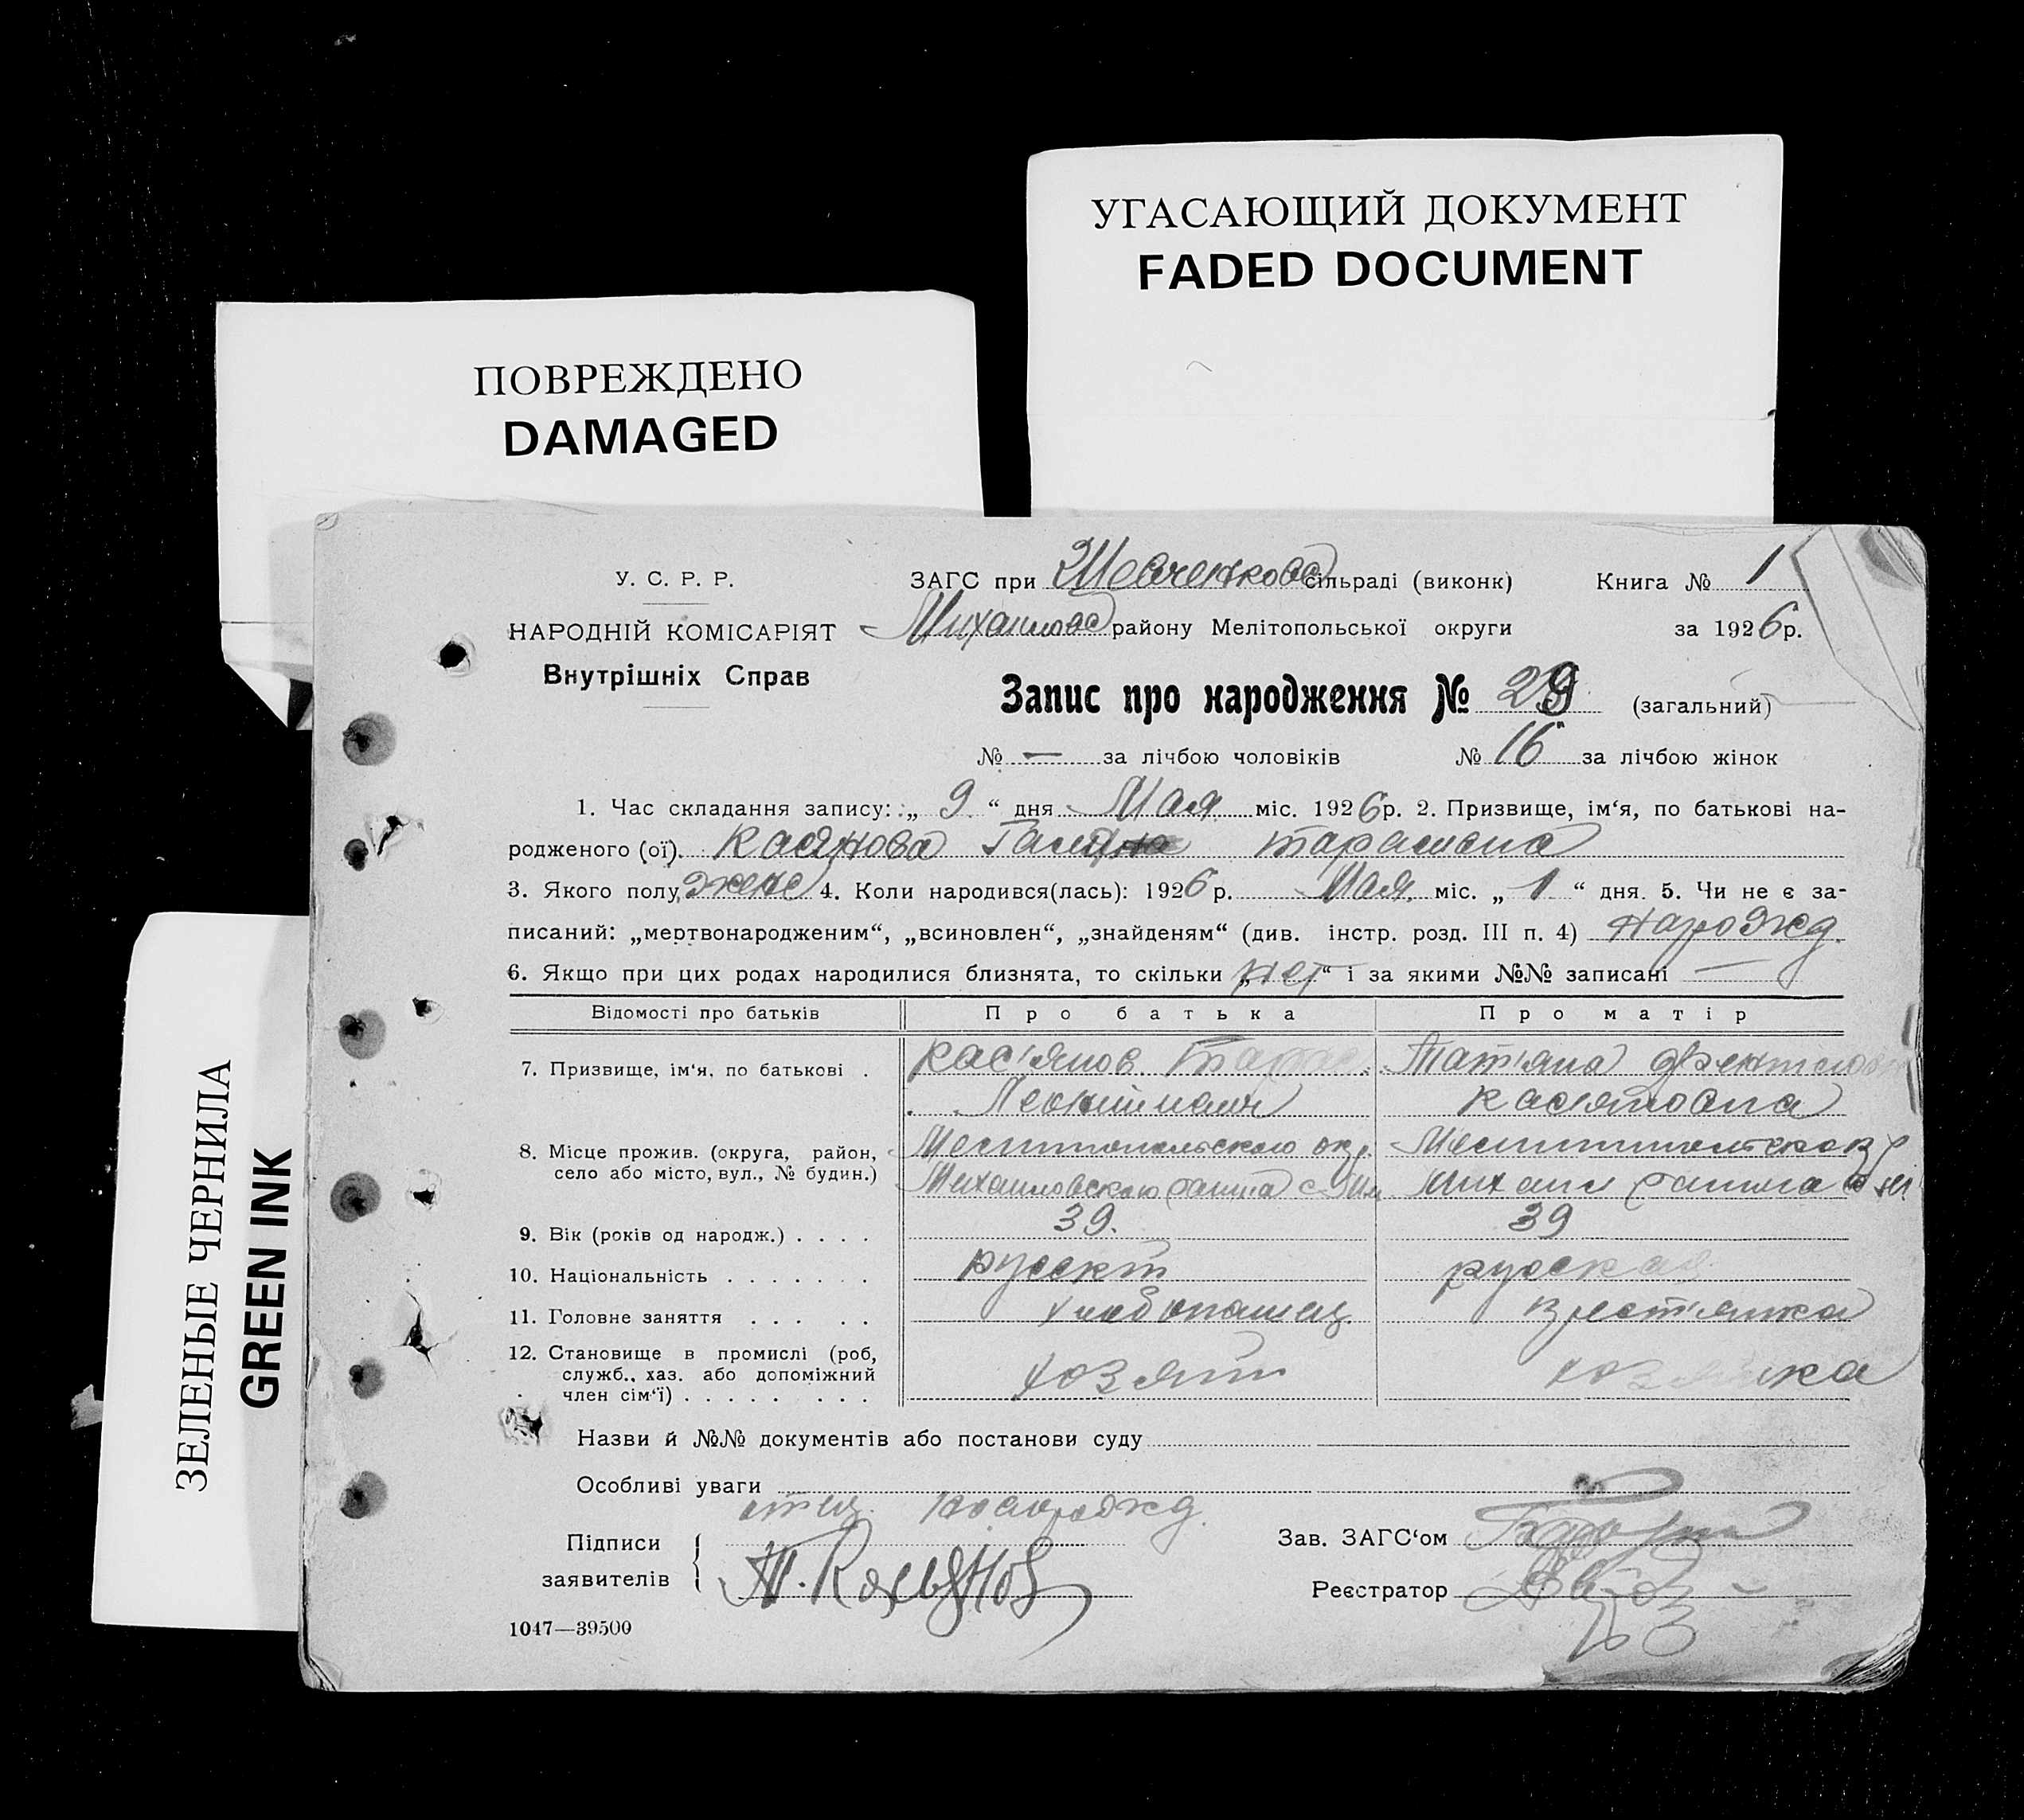 УГАСАЮЩИЙ ДОКУМЕНТ
FADED DOCUMENT
ПОВРЕЖДЕНО
DAMAGED
ЗЕЛЕНЫЕ ЧЕРНИЛА
GREEN INK
У. С. Р. Р.
НАРОДНІЙ КОМІСАРІЯТ
Внутрішніх Справ
ЗАГС при Шевченков сільраді (виконк)
Книга № 1
Михайлов району Мелітопольської округи
за 1926р.
Запис про народження № 29 (загальний)
№ — за лічбою чоловіків № 16 за лічбою жінок
1. Час складання запису: „ 9 “ дня Мая міс. 1926р. 2. Призвище, ім‘я, по батькові на-
родженого (ої). Касянова Галина Тарасовна
3. Якого полу жен 4. Коли народився(лась): 1926р. Мая. міс. „ 1 “ дня. 5. Чи не є за-
писаний: „мертвонародженим“, „всиновлен“, „знайденям“ (див. інстр. розд. III п. 4)
6. Якщо при цих родах народилися близнята, то скільки „нет“ і за якими №№ записані —
Відомості про батьків Про батька Про матір
7. Призвище, ім‘я, по батькові . Кас'янов Тарас Тат'яна
Касяновна
8. Місце прожив. (округа, район, Мелитопольского окр.
село або місто, вул., № будин.) Михайловского района с Михайл района
9. Вік (років од народж.) . . . . 39. 39
10. Національність . . . . . . . русский русская
11. Головне заняття . . . . . хлебопашец крестьянка
12. Становище в промислі (роб, служб., хаз. або допоміжний член сім‘ї) . . . . . . . . хозяин хозяйка
Назви й №№ документів або постанови суду
Особливі уваги
отец
Підписи
заявителів
Т. Касьянов
Зав. ЗАГС‘ом
Реєстратор
1047—39500